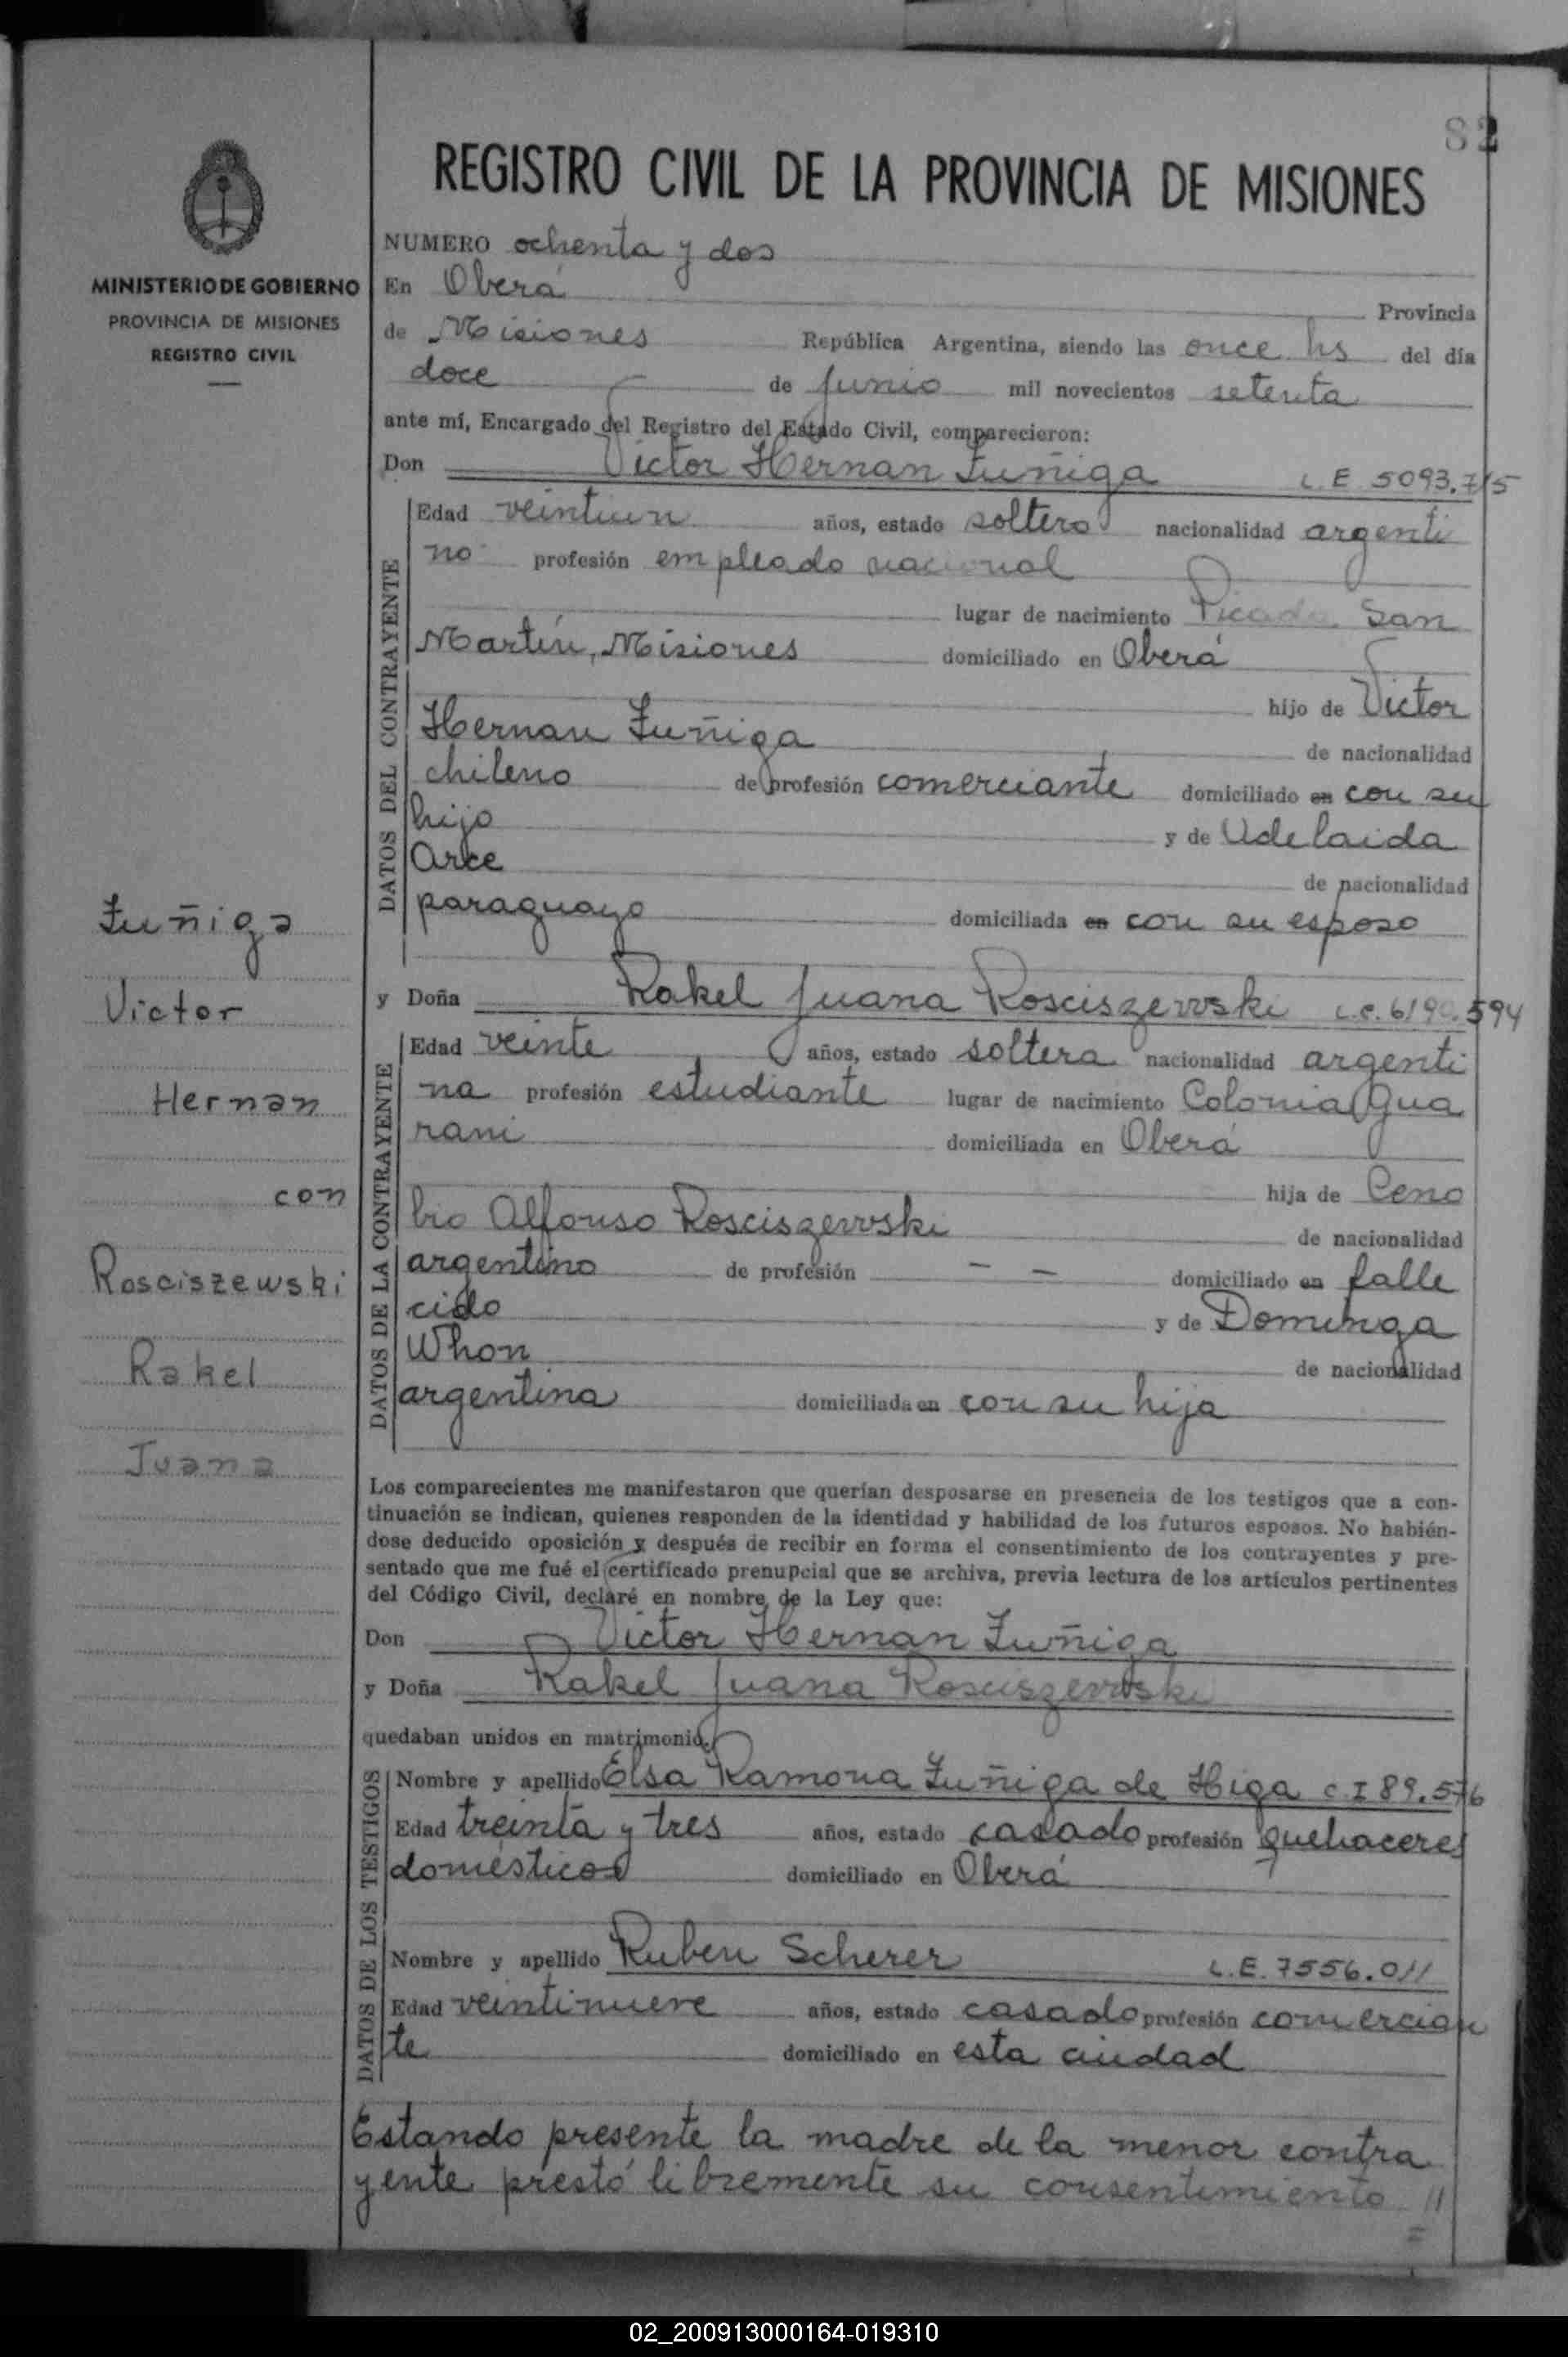 82
REGISTRO CIVIL DE LA PROVINCIA DE MISIONES
MINISTERIO DE GOBIERNO
PROVINCIA DE MISIONES
REGISTRO CIVIL
NUMERO ochenta y dos
En Oberá Provincia
de Misiones República Argentina, siendo las once hs del día
doce de junio mil novecientos setenta
ante mí, Encargado del Registro del Estado Civil, comparecieron:
Don Victor Hernan Zuñiga L.E. 5093.715
DATOS DEL CONTRAYENTE
Edad veintiun años, estado soltero nacionalidad argenti
no profesión empleado nacional
lugar de nacimiento Picada San
Martín, Misiones domiciliado en Oberá
hijo de Victor
Hernan Zuñiga de nacionalidad
chileno de profesión comerciante domiciliado en con su
hijo y de Adelaida
Arce de nacionalidad
paraguayo domiciliada en con su esposo
y Doña Rakel Juana Rosciszewski L.C. 6190.594
DATOS DE LA CONTRAYENTE
Edad veinte años, estado soltera nacionalidad argenti
na profesión estudiante lugar de nacimiento Colonia Gua
rani domiciliada en Oberá
hija de Ceno
bio Alfonso Rosciszewski de nacionalidad
argentino de profesión - - domiciliado en falle
cido y de Dominga
Whon de nacionalidad
argentina domiciliada en con su hija
Zuñiga
Victor
Hernan
con
Rosciszewski
Rakel
Juana
Los comparecientes me manifestaron que querían desposarse en presencia de los testigos que a con-
tinuación se indican, quienes responden de la identidad y habilidad de los futuros esposos. No habién-
dose deducido oposición y después de recibir en forma el consentimiento de los contrayentes y pre-
sentado que me fué el certificado prenupcial que se archiva, previa lectura de los artículos pertinentes
del Código Civil, declaré en nombre de la Ley que:
Don Victor Hernan Zuñiga
y Doña Rakel Juana Rosciszewski
quedaban unidos en matrimonio.
DATOS DE LOS TESTIGOS
Nombre y apellido Elsa Ramona Zuñiga de Higa C.I 89.576
Edad treinta y tres años, estado casado profesión quehaceres
domésticos domiciliado en Oberá
Nombre y apellido Ruben Scherer L.E. 7556.011
Edad veintinueve años, estado casado profesión comercian
te domiciliado en esta ciudad
Estando presente la madre de la menor contra
yente prestó libremente su consentimiento //
=
02_200913000164-019310